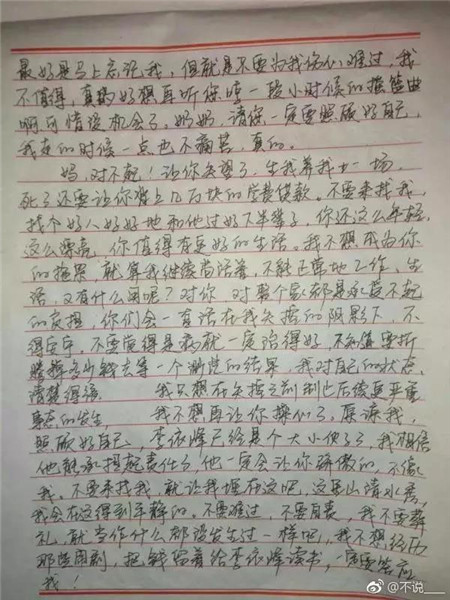 最好是马上忘记我，但就是不要为我伤心难过，我
不值得，真的好想再听你哼一段小时候的摇篮曲
啊可惜没机会了。奶奶，请你一定要照顾好自己，
我走的时候一点也不痛苦，真的。
妈，对不起！让你失望了，生我养我廿一场，
死了还要让你背上几万块的学费贷款。不要来找我，
找个好人好好地和他过好下半辈子，你还这么年轻，
这么漂亮，你值得有更好的生活。我不想成为你
的拖累，就算我继续苟活着，不能正常地工作、生
活，又有什么用呢？对你，对整个家都是承受不起
的负担，你们会一直活在我失控的阴影下，不
得安宁。不要觉得是病就一定治得好，不知道要折
腾掉多少钱去等一个渺茫的结果，我对自己的状态
清楚得很。我只想在失控之前制止后续更严重
事态的发生，我不想再让你操心了，原谅我，
照顾好自己。李依烽已经是个大小伙了，我相信
他能承担起责任的，他一定会让你骄傲的，不像
我。不要来找我，就让我埋在这吧，这里山清水秀，
我会在这得到安静的。不要难过，不要自责，我不要葬
礼，就当作什么都没发生过一样吧，我不想经历
那些闹剧，把钱留着给李依烽读书，一定要答应
我！
@不说__